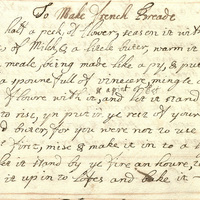 To Make french Breade
half a peck of flower, season it with
s of Milk, & a little buter, warm it
meale, being made like a py, & put
a spoune full of vinecere, mingle
floure with it, and let it stand
to rise, yn put in ye rest of your
d buter, for you were not to use
first, mix & make it in to a
let it stand by ye fire an houre,
it up in to loves and bake it